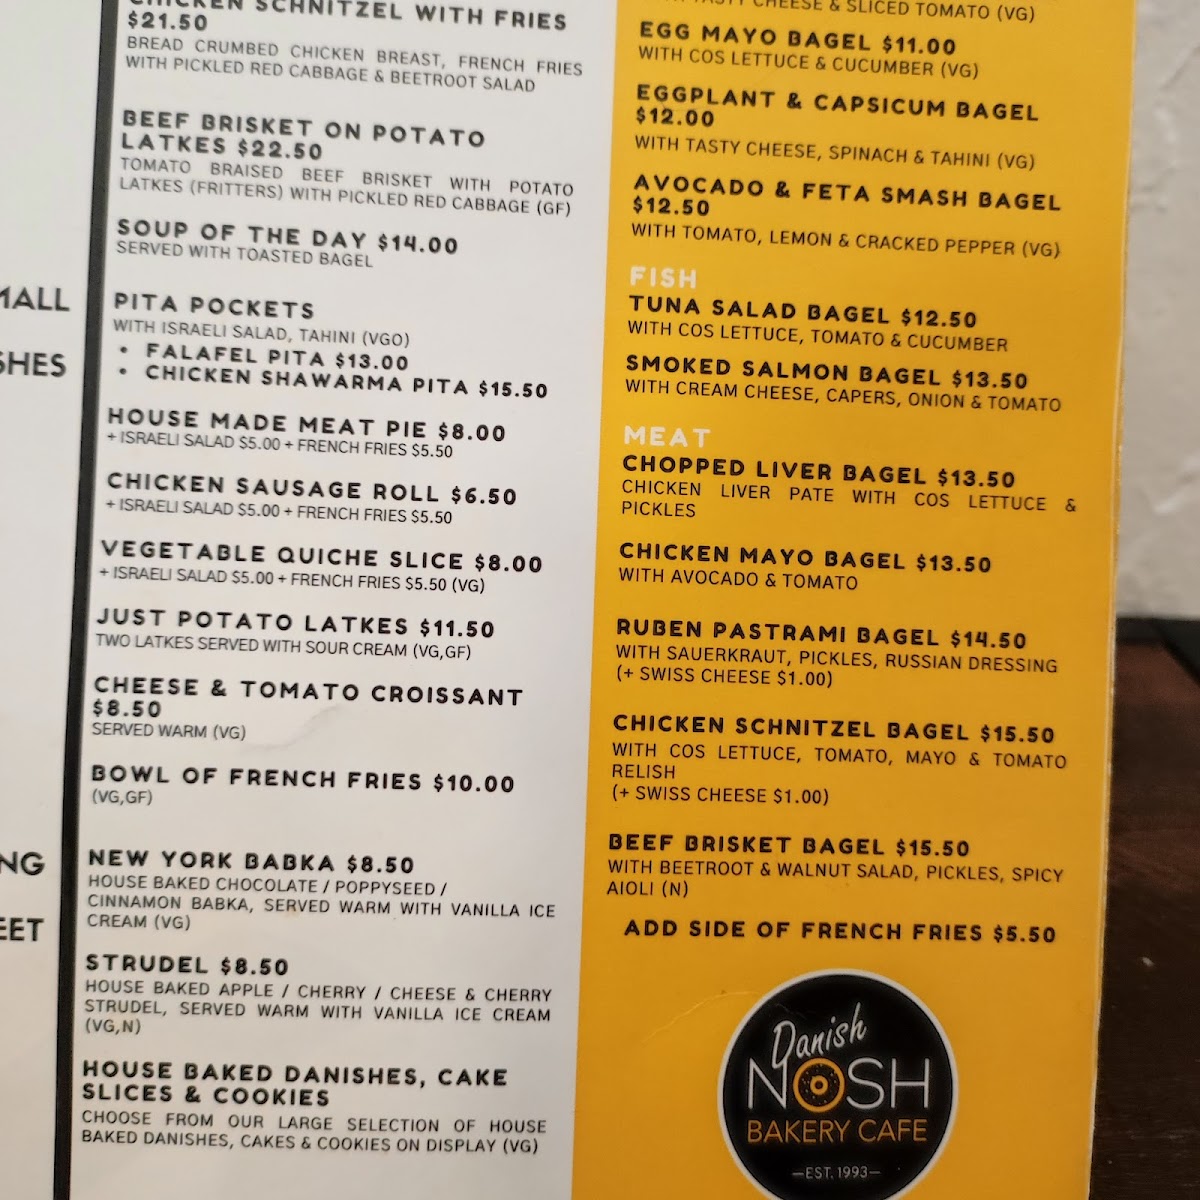 CHICKEN SCHNITZEL WITH FRIES
$21.50
BREAD CRUMBED CHICKEN BREAST, FRENCH FRIES
WITH PICKLED RED CABBAGE & BEETROOT SALAD
BEEF BRISKET ON POTATO
LATKES $22.50
TOMATO BRAISED BEEF BRISKET WITH POTATO
LATKES (FRITTERS) WITH PICKLED RED CABBAGE (GF)
SOUP OF THE DAY $14.00
SERVED WITH TOASTED BAGEL
PITA POCKETS
WITH ISRAELI SALAD, TAHINI (VGO)
• FALAFEL PITA $13.00
• CHICKEN SHAWARMA PITA $15.50
HOUSE MADE MEAT PIE $8.00
+ ISRAELI SALAD $5.00 + FRENCH FRIES $5.50
CHICKEN SAUSAGE ROLL $6.50
+ ISRAELI SALAD $5.00 + FRENCH FRIES $5.50
VEGETABLE QUICHE SLICE $8.00
+ ISRAELI SALAD $5.00 + FRENCH FRIES $5.50 (VG)
JUST POTATO LATKES $11.50
TWO LATKES SERVED WITH SOUR CREAM (VG,GF)
CHEESE & TOMATO CROISSANT
$8.50
SERVED WARM (VG)
BOWL OF FRENCH FRIES $10.00
(VG,GF)
NEW YORK BABKA $8.50
HOUSE BAKED CHOCOLATE / POPPYSEED /
CINNAMON BABKA, SERVED WARM WITH VANILLA ICE
CREAM (VG)
STRUDEL $8.50
HOUSE BAKED APPLE / CHERRY / CHEESE & CHERRY
STRUDEL, SERVED WARM WITH VANILLA ICE CREAM
(VG,N)
HOUSE BAKED DANISHES, CAKE
SLICES & COOKIES
CHOOSE FROM OUR LARGE SELECTION OF HOUSE
BAKED DANISHES, CAKES & COOKIES ON DISPLAY (VG)
TASTY CHEESE & SLICED TOMATO (VG)
EGG MAYO BAGEL $11.00
WITH COS LETTUCE & CUCUMBER (VG)
EGGPLANT & CAPSICUM BAGEL
$12.00
WITH TASTY CHEESE, SPINACH & TAHINI (VG)
AVOCADO & FETA SMASH BAGEL
$12.50
WITH TOMATO, LEMON & CRACKED PEPPER (VG)
FISH
TUNA SALAD BAGEL $12.50
WITH COS LETTUCE, TOMATO & CUCUMBER
SMOKED SALMON BAGEL $13.50
WITH CREAM CHEESE, CAPERS, ONION & TOMATO
MEAT
CHOPPED LIVER BAGEL $13.50
CHICKEN LIVER PATE WITH COS LETTUCE &
PICKLES
CHICKEN MAYO BAGEL $13.50
WITH AVOCADO & TOMATO
RUBEN PASTRAMI BAGEL $14.50
WITH SAUERKRAUT, PICKLES, RUSSIAN DRESSING
(+ SWISS CHEESE $1.00)
CHICKEN SCHNITZEL BAGEL $15.50
WITH COS LETTUCE, TOMATO, MAYO & TOMATO
RELISH
(+ SWISS CHEESE $1.00)
BEEF BRISKET BAGEL $15.50
WITH BEETROOT & WALNUT SALAD, PICKLES, SPICY
AIOLI (N)
ADD SIDE OF FRENCH FRIES $5.50
Danish
NOSH
BAKERY CAFE
—EST. 1993—